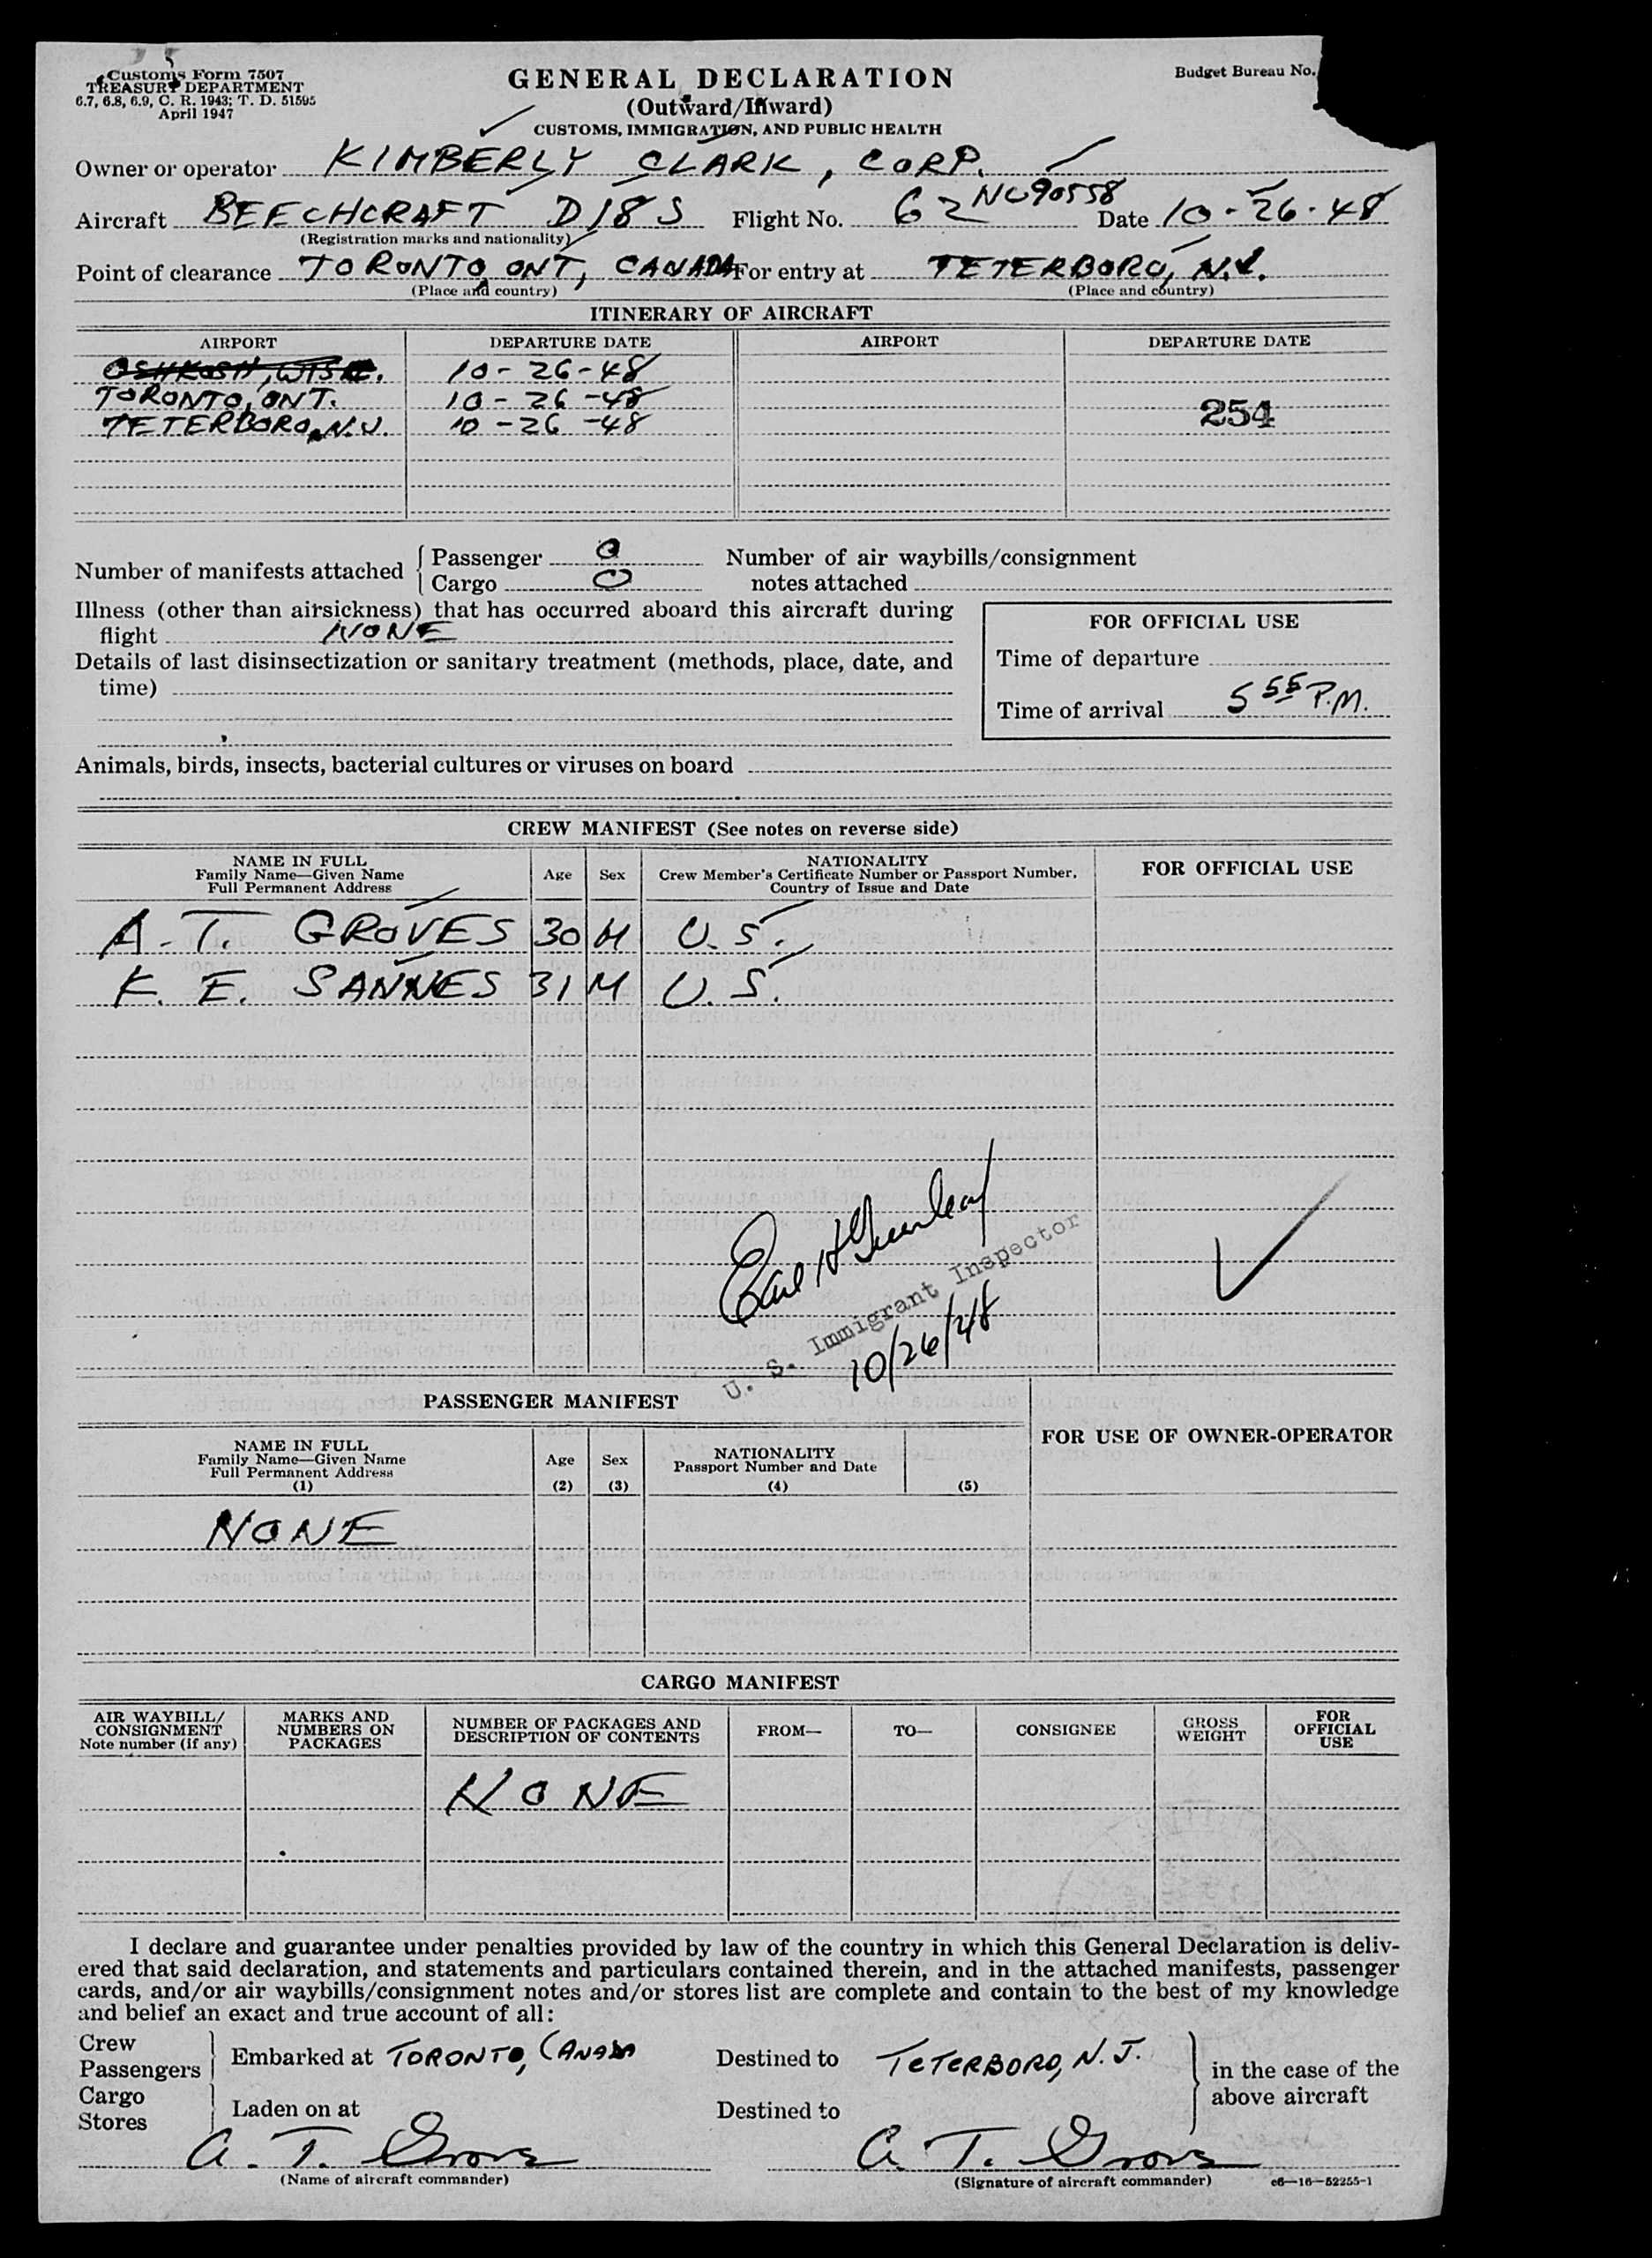 Customs Form 7507
TREASURY DEPARTMENT
6.7, 6.8, 6.9, C. R. 1943; T. D. 51595
April 1947
GENERAL DECLARATION
(Outward/Inward)
CUSTOMS, IMMIGRATION, AND PUBLIC HEALTH
Budget Bureau No.
Owner or operator KIMBERLY CLARK, CORP.
Aircraft BEECHCRAFT D18S Flight No. 62 NC90558 Date 10-26-48
(Registration marks and nationality)
Point of clearance TORONTO, ONT, CANADA For entry at TETERBORO, N.J.
(Place and country) (Place and country)
ITINERARY OF AIRCRAFT
AIRPORT DEPARTURE DATE AIRPORT DEPARTURE DATE
OSHKOSH, WISC. 10-26-48
TORONTO, ONT. 10-26-48
254
TETERBORO, N.J. 10-26-48
Number of manifests attached Passenger 0 Number of air waybills/consignment
Cargo 0 notes attached
Illness (other than airsickness) that has occurred aboard this aircraft during
flight NONE
Details of last disinsectization or sanitary treatment (methods, place, date, and
time)
FOR OFFICIAL USE
Time of departure
Time of arrival 5 55 P.M.
Animals, birds, insects, bacterial cultures or viruses on board
CREW MANIFEST (See notes on reverse side)
NAME IN FULL
Family Name—Given Name
Full Permanent Address
Age Sex
NATIONALITY
Crew Member's Certificate Number or Passport Number,
Country of Issue and Date
FOR OFFICIAL USE
A. T. GROVES 30 M U.S.
K. E. SANNES 31 M U.S.
Earl H Greenleaf
U. S. Immigrant Inspector
10/26/48
PASSENGER MANIFEST
FOR USE OF OWNER-OPERATOR
NAME IN FULL
Family Name—Given Name
Full Permanent Address
(1)
Age
(2)
Sex
(3)
NATIONALITY
Passport Number and Date
(4)
(5)
NONE
CARGO MANIFEST
AIR WAYBILL/
CONSIGNMENT
Note number (if any)
MARKS AND
NUMBERS ON
PACKAGES
NUMBER OF PACKAGES AND
DESCRIPTION OF CONTENTS
FROM—
TO—
CONSIGNEE
GROSS
WEIGHT
FOR
OFFICIAL
USE
NONE
I declare and guarantee under penalties provided by law of the country in which this General Declaration is deliv-
ered that said declaration, and statements and particulars contained therein, and in the attached manifests, passenger
cards, and/or air waybills/consignment notes and/or stores list are complete and contain to the best of my knowledge
and belief an exact and true account of all:
Crew
Passengers
Embarked at TORONTO, CANADA Destined to TETERBORO, N.J.
in the case of the
above aircraft
Cargo
Stores
Laden on at Destined to
A. T. Groves A. T. Groves
(Name of aircraft commander) (Signature of aircraft commander) c6—16—52255-1